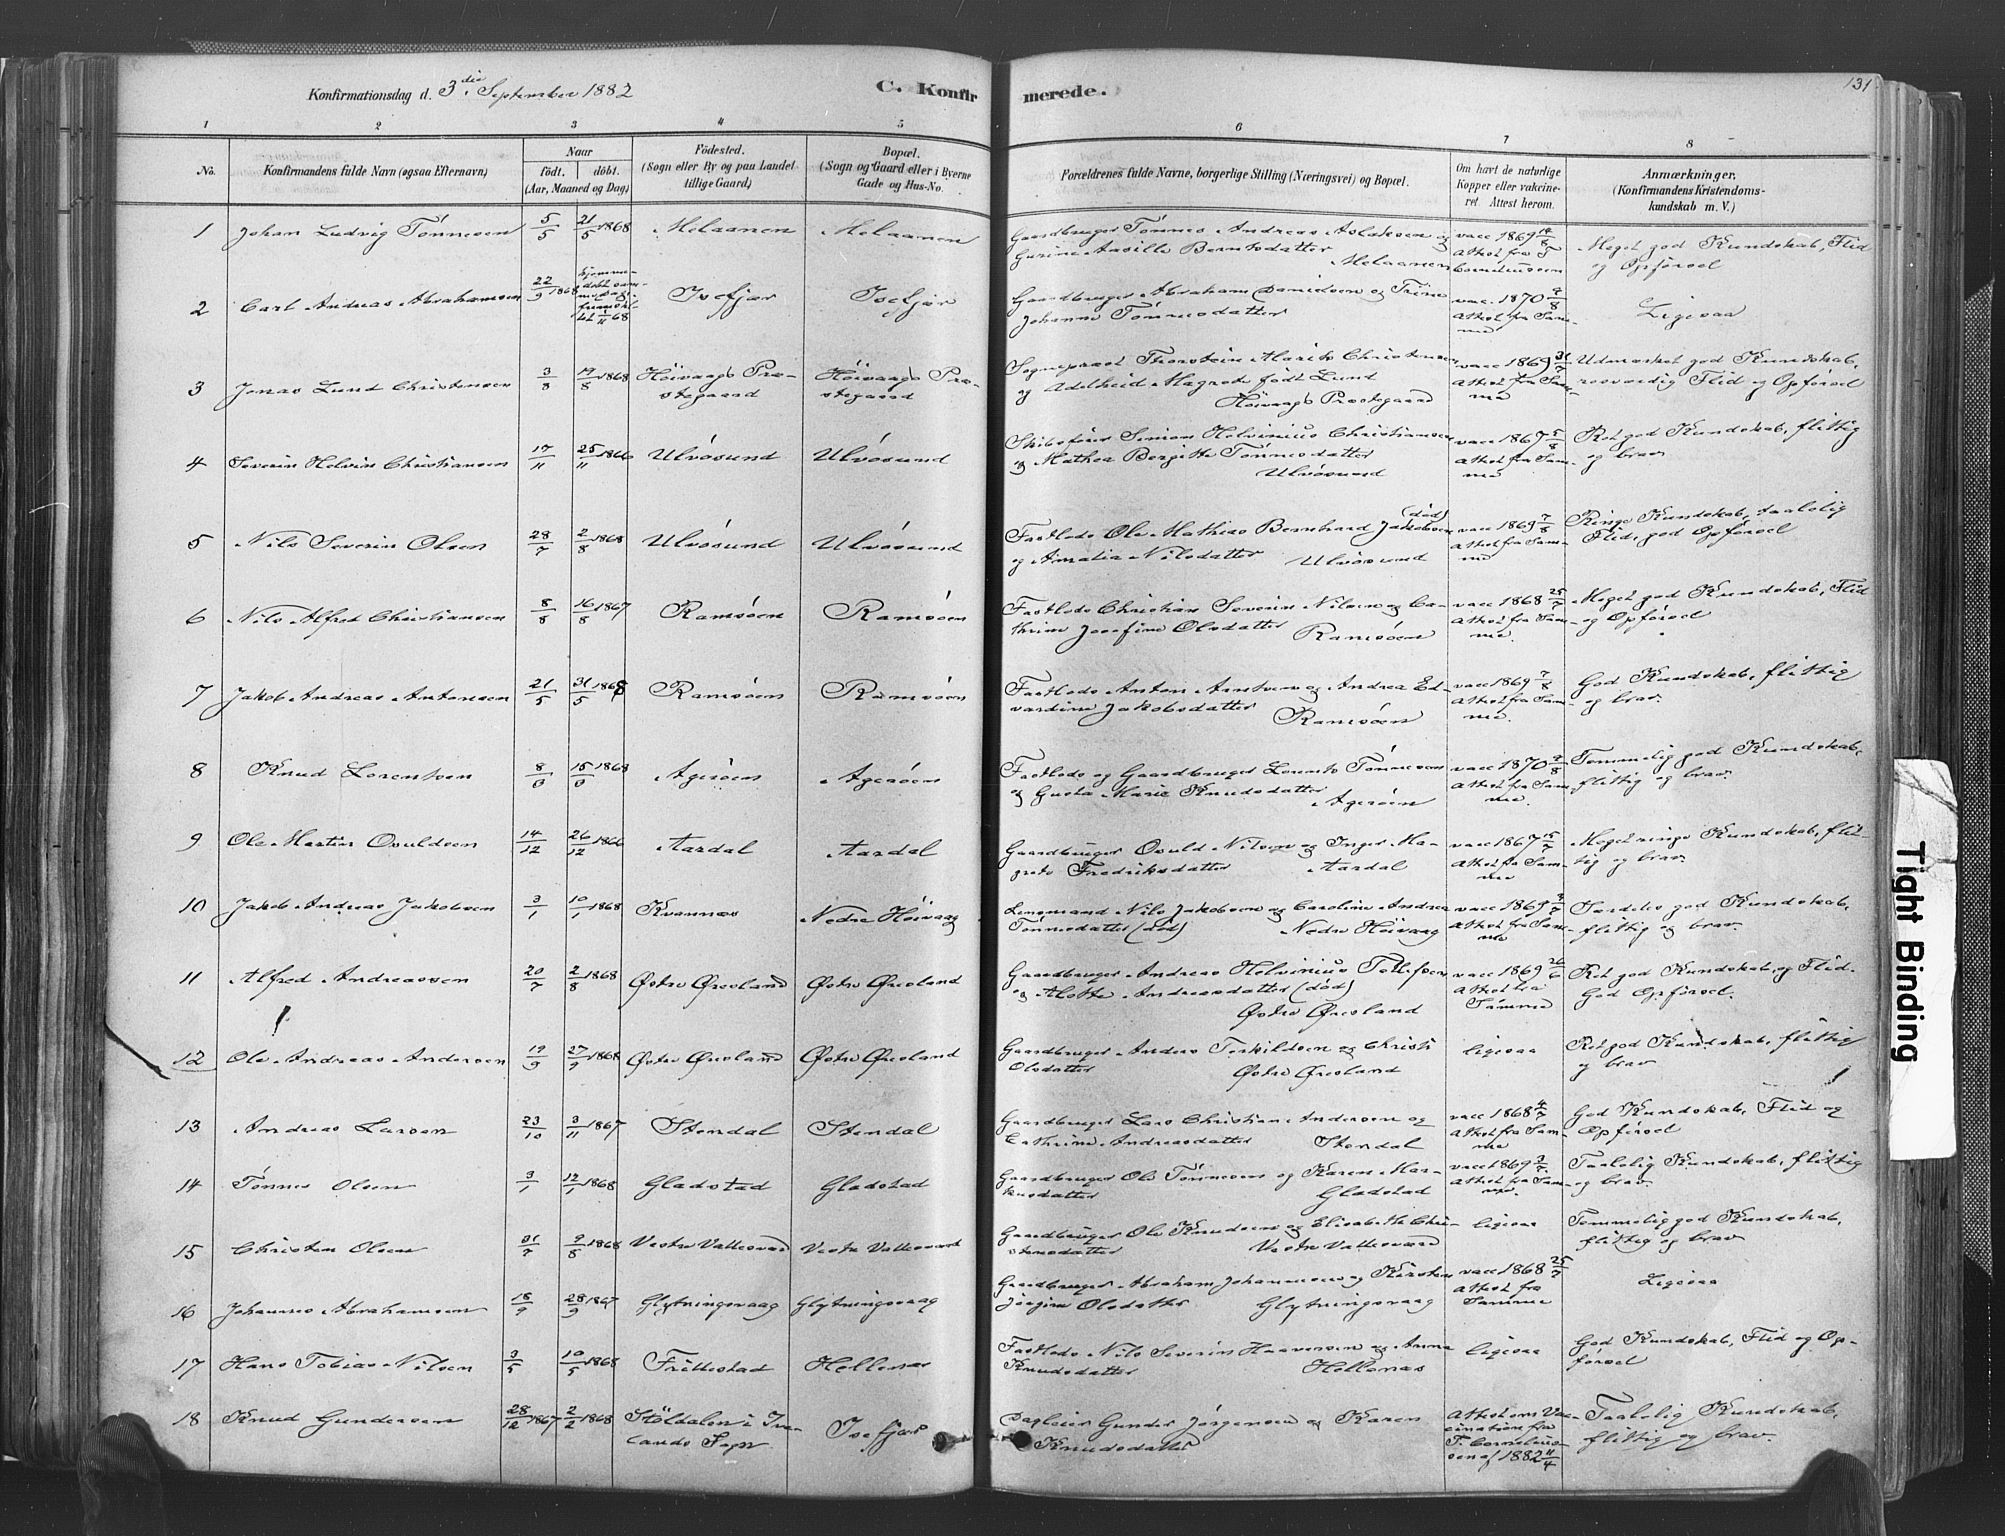 Konfirmationsdag d. 3die September 1882
C. Konfirmerede.
131
1 2 3 4 5 6 7 8
No.
Konfirmandens fulde Navn (ogsaa Efternavn)
Naar
født. døbt.
(Aar, Maaned og Dag)
Fødested.
(Sogn eller By og paa Landet tillige Gaard)
Bopæl.
(Sogn og Gaard eller i Byerne Gade og Hus-No.
Forældrenes fulde Navne, borgerlige Stilling (Næringsvei) og Bopæl.
Om havt de naturlige Kopper eller vakcineret Attest herom.
Anmærkninger.
(Konfirmandens Kristendomskundskab m. V.)
1 Johan Ludvig Tønnesen 5/5 21/5 1868 Melaanen Melaanen Gaardbruger Tønnes Andreas Aslaksen og Gurine Berntsdatter Melaanen vacc 1869 14/8 Attest fra T Corneliussen Meget god Kundskab, Flid og Opførsel
2 Carl Andreas Abrahamsen 22/9 1868 Isefjær Isefjær Gaardbruger Abraham Danielsen og Trine Johanne Tønnesdatter vacc. 1870 9/8 Attest fra Samme Ligesaa
3 Jonas Lund Christensen 3/8 19/8 1868 Høivaags Præstegaard Høivaags Præstegaard Sogneprest Thorstein Marits Christensen og Adelheid Magret født Lund Høivaags Præstegaard vacc 1869 31/7 Attest fra Samme Udmærket god Kundskab, rosværdig Flid og Opførsel
4 Severin Helvin Christiansen 17/11 25/11 1866 Ulvøsund Ulvøsund Skibsfører Simon Helvinius Christiansen og Mathea Bergitte Tønnesdatter Ulvøsund vacc 1867 5/8 Attest fra Samme Ret god Kundskab, flittig og brav
5 Nils Severin Olsen 28/7 2/8 1868 Ulvøsund Ulvøsund Fastlods Ole Mathias Bernhard Jakobsen (død) og Amalia Nilsdatter Ulvøsund vacc 1869 7/8 Attest fra Samme Ringe Kundskab, taalelig Flid, god Opførsel
6 Nils Alfred Christiansen 8/8 16/8 1867 Ramsøen Ramsøen Fastlods Christian Severin Nilsen og Cathrine Josefine Olsdatter Ramsøen vacc 1868 25/7 Attest fra Samme. Meget god Kundskab, Flid og Opførsel
7 Jakob Andreas Antonsen 21/5 31/5 1868 Ramsøen Ramsøen Fastlods Anton Arntsen og Andrea Edvardine Jakobsdatter Ramsøen vacc 1869 7/8 Attest fra Samme. God Kundskab, flittig og brav.
8 Knud Lorentsen 15 1868 Agerøen Agerøen Fastlods og Gaardbruger Lorents Tønnesen og Gusta Marie Knudsdatter Agerøen vacc 1870 9/8 Attest fra Samme. Temmelig god Kundskab, flittig og brav.
9 Ole Martin Osuldsen 14/12 26/12 1866 Aardal Aardal Gaardbruger Osuld Nilsen og Inger Magrete Fredriksdatter Aardal vacc 1867 15/7 Attest fra Samme Meget ringe Kundskab, flittig og brav
10 Jakob Andreas Jakobsen 3/1 10/1 1868 Kvannæs Nedre Høivaag Lensmand Nils Jakobsen og Caroline Andrea Tønnesdatter (død) Nedre Høivaag vacc 1869 Attest fra Samme Særdeles god Kundskab, flittig og brav.
11 Alfred Andreassen 20/7 2/8 1868 Østre Øresland Østre Øresland Gaardbruger Andreas Helvinius Tellefsen og Alette Andreasdatter (død) Østre Øresland vacc 1869 26/6 Attest fra Samme Ret god Kundskab, og Flid. God Opførsel.
12 Ole Andreas Andersen 19/9 27/9 1868 Østre Øresland Østre Øresland Gaardbruger Anders Terkildsen og Christi Olsdatter Østre Øresland ligesaa Ret god Kundskab, flittig og brav
13 Andreas Larsen 23/10 3/11 1867 Stendal Stendal Gaardbruger Lars Christian Andersen og Cathrine Andreasdatter Stendal vacc 1868 4/7 Attest fra Samme God Kundskab, Flid og Opførsel
14 Tønnes Olsen 3/1 12/1 1868 Gladstad Gladstad Gaardbruger Ole Tønnesen og Karen Markusdatter Gladstad vacc 1869 3/7 Attest fra Samme. Taalelig Kundskab, flittig og brav.
15 Christen Olsen 31/7 9/8 1868 Vestre Vallesværd Vestre Vallesværd Gaardbruger Ole Knudsen og Elisabeth Christensdatter Vestre Vallesværd ligesaa Temmelig god Kundskab, flittig og brav
16 Johannes Abrahamsen 18/9 28/9 1867 Glytningsvaag Glytningsvaag Gaardbruger Abraham Johannesen og Kirsten Jørgine Olsdatter Glytningsvaag vacc 1868 25/7 Attest fra Samme Ligesaa
17 Hans Tobias Nilsen 3/5 10/5 1868 Frillestad Hellenæs Fastlods Nils Severin Haaversen og Anne Knudsdatter Hellenæs ligesaa God Kundskab, Flid og Opførsel
18 Knud Gundersen 28/12 1867 2/2 1868 Støldalen i Ivelands Sogn Isefjær Dagleier Gunder Jørgensen og Karen Knudsdatter Attest om Vaccination fra T. Corneliussen af 1882 11/4 Taalelig Kundskab, flittig og brav.
Tight Binding